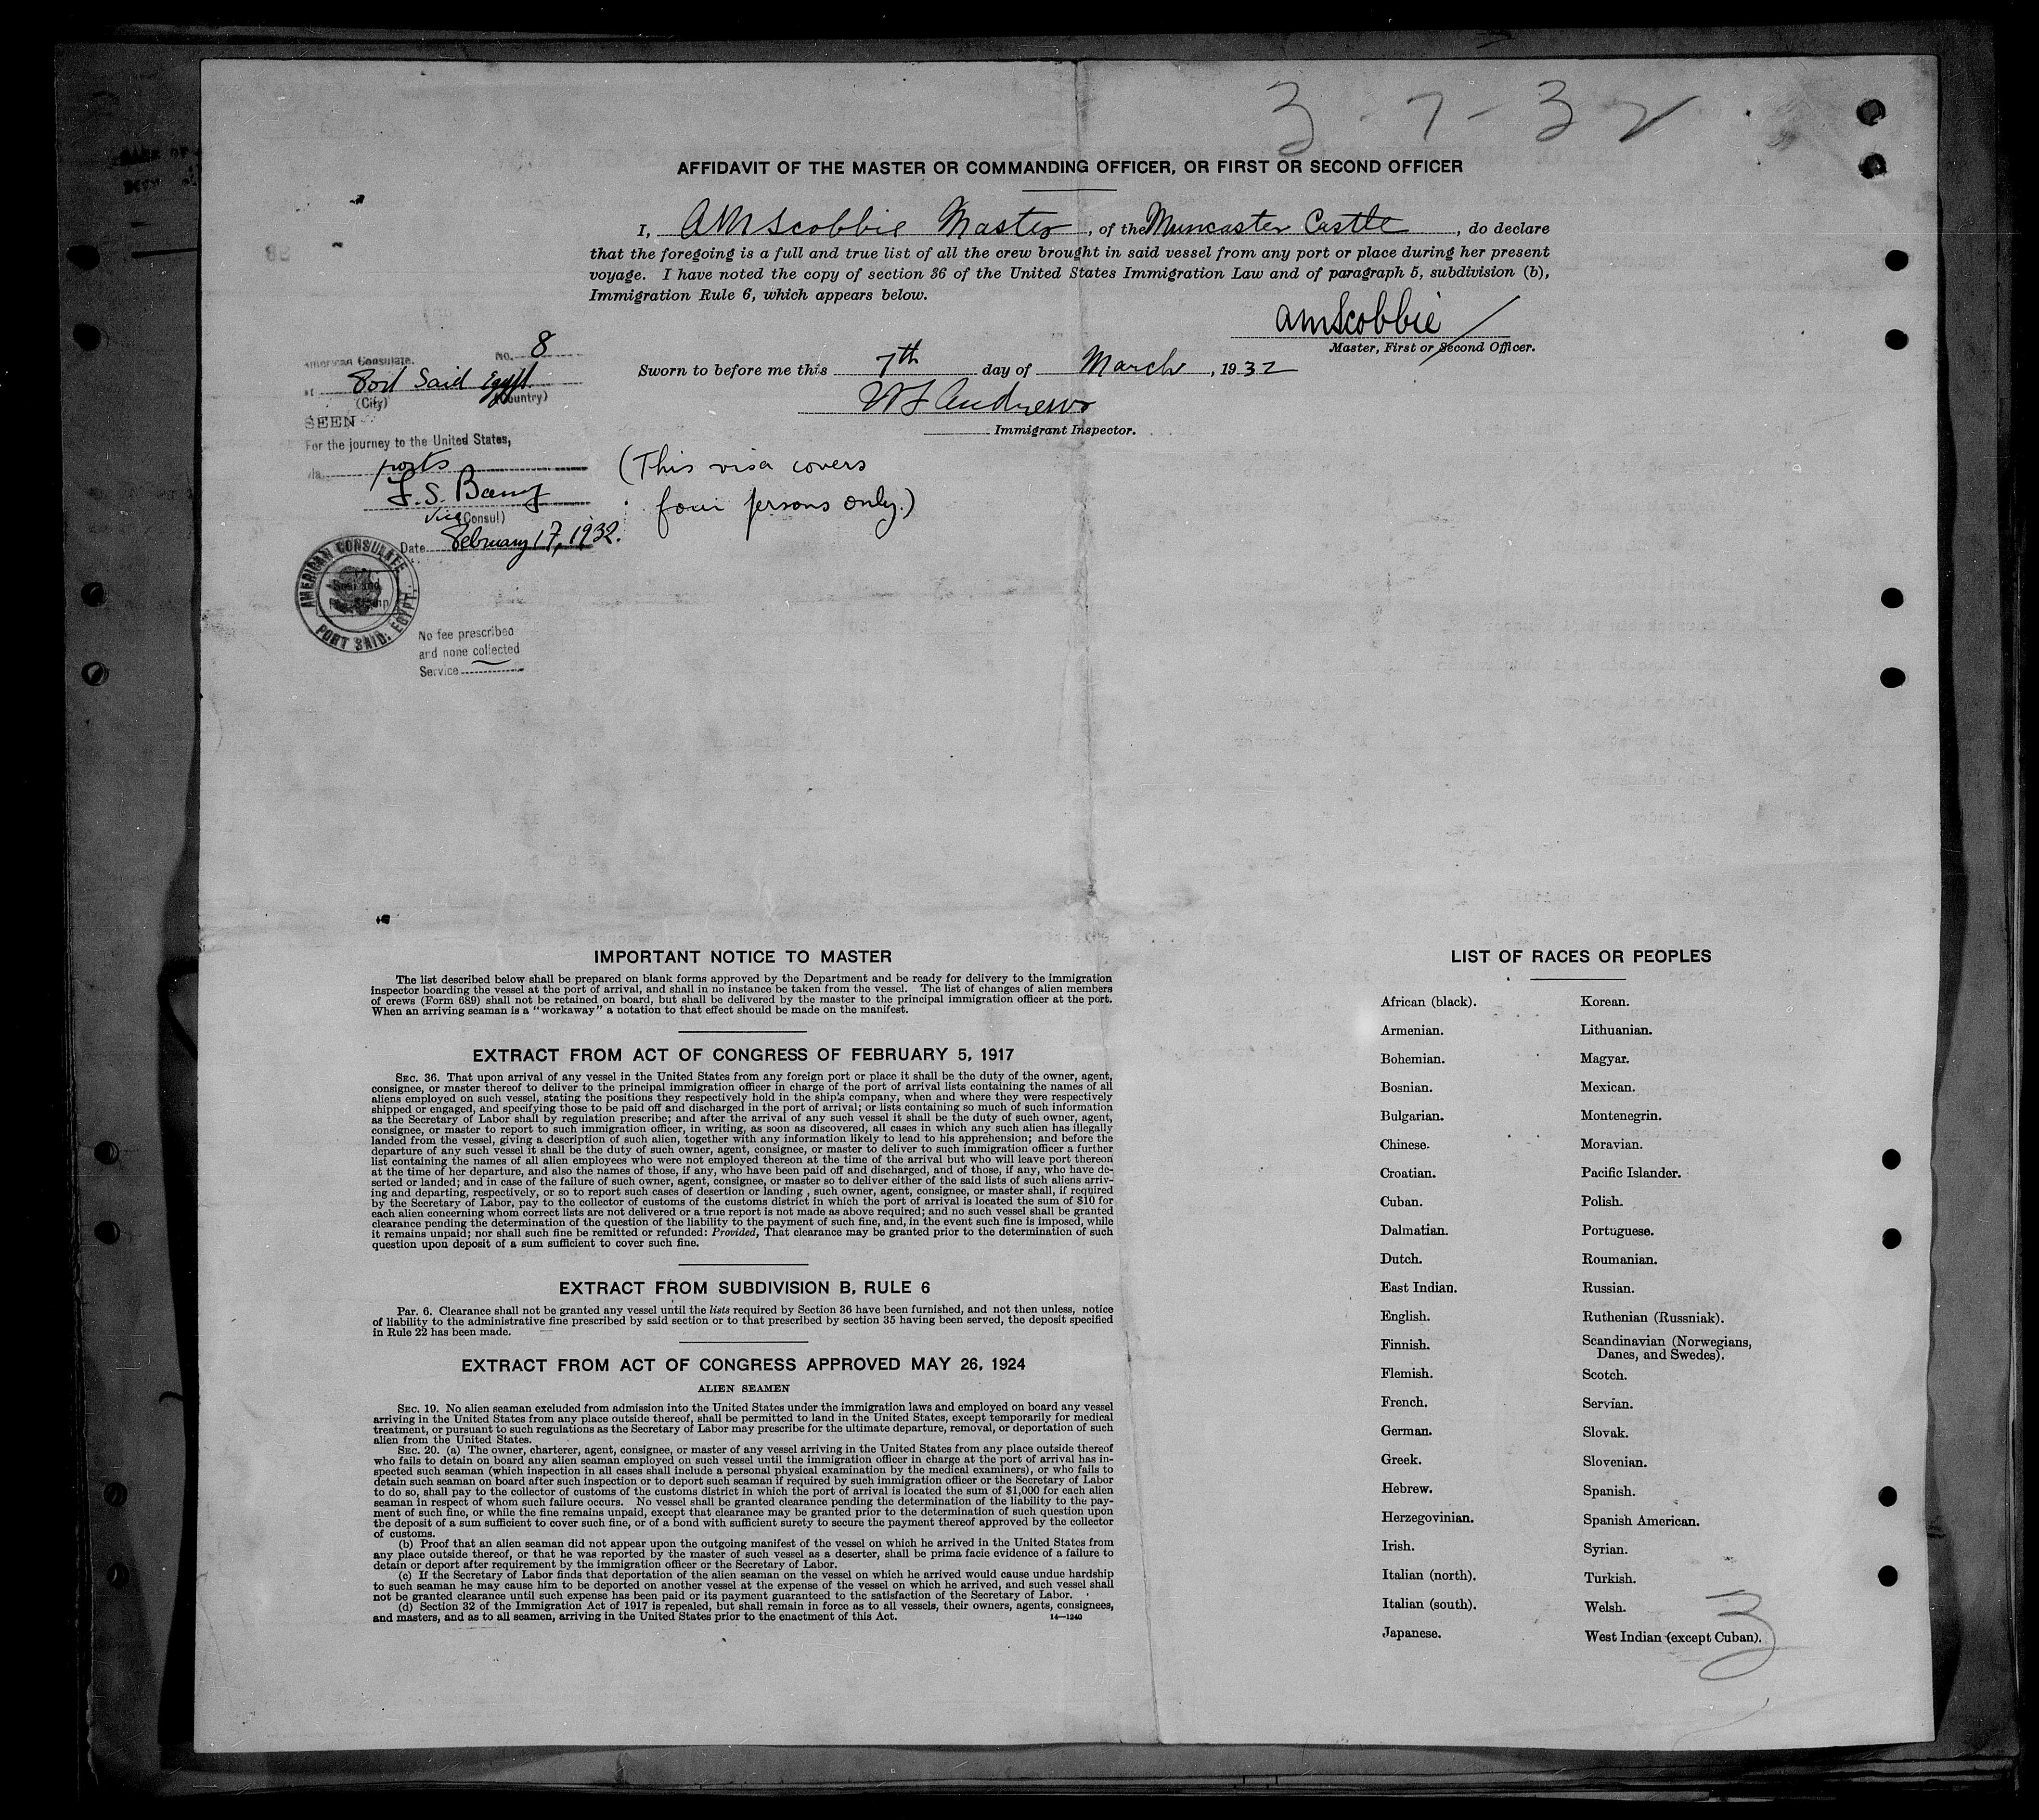 3-7-32
AFFIDAVIT OF THE MASTER OR COMMANDING OFFICER, OR FIRST OR SECOND OFFICER
I, AMScobbie Master, of the Muncaster Castle, do declare
that the foregoing is a full and true list of all the crew brought in said vessel from any port or place during her present
voyage. I have noted the copy of section 36 of the United States Immigration Law and of paragraph 5, subdivision (b),
Immigration Rule 6, which appears below.
AMScobbie
Master, First or Second Officer.
Sworn to before me this 7th day of March, 1932
Andrews
Immigrant Inspector.
American Consulate. No. 8
at Port Said Egypt
(City) (Country)
SEEN
For the journey to the United States,
via ports
F. S.
Vice (Consul)
Date February 17, 1932.
(This visa covers
four persons only.)
AMERICAN CONSULATE
PORT SAID, EGYPT.
No fee prescribed
and none collected
Service
IMPORTANT NOTICE TO MASTER
The list described below shall be prepared on blank forms approved by the Department and be ready for delivery to the immigration
inspector boarding the vessel at the port of arrival, and shall in no instance be taken from the vessel. The list of changes of alien members
of crews (Form 689) shall not be retained on board, but shall be delivered by the master to the principal immigration officer at the port.
When an arriving seaman is a "workaway" a notation to that effect should be made on the manifest.
EXTRACT FROM ACT OF CONGRESS OF FEBRUARY 5, 1917
SEC. 36. That upon arrival of any vessel in the United States from any foreign port or place it shall be the duty of the owner, agent,
consignee, or master thereof to deliver to the principal immigration officer in charge of the port of arrival lists containing the names of all
aliens employed on such vessel, stating the positions they respectively hold in the ship's company, when and where they were respectively
shipped or engaged, and specifying those to be paid off and discharged in the port of arrival; or lists containing so much of such information
as the Secretary of Labor shall by regulation prescribe; and after the arrival of any such vessel it shall be the duty of such owner, agent,
consignee, or master to report to such immigration officer, in writing, as soon as discovered, all cases in which any such alien has illegally
landed from the vessel, giving a description of such alien, together with any information likely to lead to his apprehension; and before the
departure of any such vessel it shall be the duty of such owner, agent, consignee, or master to deliver to such immigration officer a further
list containing the names of all alien employees who were not employed thereon at the time of the arrival but who will leave port thereon
at the time of her departure, and also the names of those, if any, who have been paid off and discharged, and of those, if any, who have de-
serted or landed; and in case of the failure of such owner, agent, consignee, or master so to deliver either of the said lists of such aliens arriv-
ing and departing, respectively, or so to report such cases of desertion or landing , such owner, agent, consignee, or master shall, if required
by the Secretary of Labor, pay to the collector of customs of the customs district in which the port of arrival is located the sum of $10 for
each alien concerning whom correct lists are not delivered or a true report is not made as above required; and no such vessel shall be granted
clearance pending the determination of the question of the liability to the payment of such fine, and, in the event such fine is imposed, while
it remains unpaid; nor shall such fine be remitted or refunded: Provided, That clearance may be granted prior to the determination of such
question upon deposit of a sum sufficient to cover such fine.
EXTRACT FROM SUBDIVISION B, RULE 6
Par. 6. Clearance shall not be granted any vessel until the lists required by Section 36 have been furnished, and not then unless, notice
of liability to the administrative fine prescribed by said section or to that prescribed by section 35 having been served, the deposit specified
in Rule 22 has been made.
EXTRACT FROM ACT OF CONGRESS APPROVED MAY 26, 1924
ALIEN SEAMEN
SEC. 19. No alien seaman excluded from admission into the United States under the immigration laws and employed on board any vessel
arriving in the United States from any place outside thereof, shall be permitted to land in the United States, except temporarily for medical
treatment, or pursuant to such regulations as the Secretary of Labor may prescribe for the ultimate departure, removal, or deportation of such
alien from the United States.
SEC. 20. (a) The owner, charterer, agent, consignee, or master of any vessel arriving in the United States from any place outside thereof
who fails to detain on board any alien seaman employed on such vessel until the immigration officer in charge at the port of arrival has in-
spected such seaman (which inspection in all cases shall include a personal physical examination by the medical examiners), or who fails to
detain such seaman on board after such inspection or to deport such seaman if required by such immigration officer or the Secretary of Labor
to do so, shall pay to the collector of customs of the customs district in which the port of arrival is located the sum of $1,000 for each alien
seaman in respect of whom such failure occurs. No vessel shall be granted clearance pending the determination of the liability to the pay-
ment of such fine, or while the fine remains unpaid, except that clearance may be granted prior to the determination of such question upon
the deposit of a sum sufficient to cover such fine, or of a bond with sufficient surety to secure the payment thereof approved by the collector
of customs.
(b) Proof that an alien seaman did not appear upon the outgoing manifest of the vessel on which he arrived in the United States from
any place outside thereof, or that he was reported by the master of such vessel as a deserter, shall be prima facie evidence of a failure to
detain or deport after requirement by the immigration officer or the Secretary of Labor.
(c) If the Secretary of Labor finds that deportation of the alien seaman on the vessel on which he arrived would cause undue hardship
to such seaman he may cause him to be deported on another vessel at the expense of the vessel on which he arrived, and such vessel shall
not be granted clearance until such expense has been paid or its payment guaranteed to the satisfaction of the Secretary of Labor.
(d) Section 32 of the Immigration Act of 1917 is repealed, but shall remain in force as to all vessels, their owners, agents, consignees,
and masters, and as to all seamen, arriving in the United States prior to the enactment of this Act. 14—1240
LIST OF RACES OR PEOPLES
African (black). Korean.
Armenian. Lithuanian.
Bohemian. Magyar.
Bosnian. Mexican.
Bulgarian. Montenegrin.
Chinese. Moravian.
Croatian. Pacific Islander.
Cuban. Polish.
Dalmatian. Portuguese.
Dutch. Roumanian.
East Indian. Russian.
English. Ruthenian (Russniak).
Finnish. Scandinavian (Norwegians,
Danes, and Swedes).
Flemish. Scotch.
French. Servian.
German. Slovak.
Greek. Slovenian.
Hebrew. Spanish.
Herzegovinian. Spanish American.
Irish. Syrian.
Italian (north). Turkish.
Italian (south). Welsh.
Japanese. West Indian (except Cuban).
3